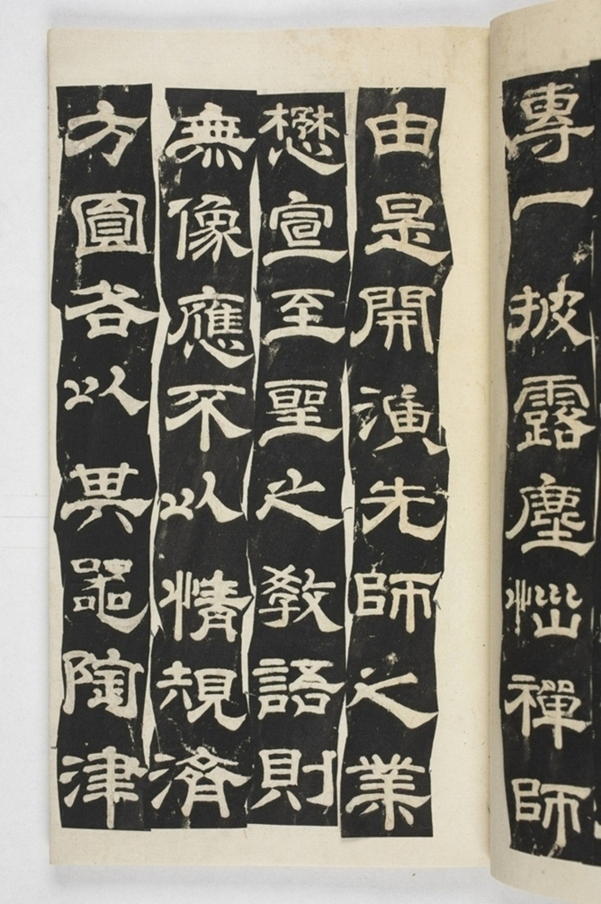 專一披露塵惱禪師
由是開演先師之業
懋宣至聖之教語則
無像應不以情規濟
方圓各以其器陶津